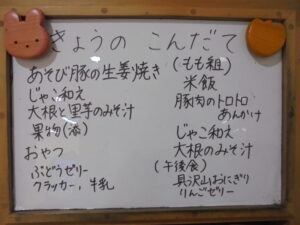 きょうの こんだて
あそび豚の生姜焼き
じゃこ和え
大根と里芋のみそ汁
果物(添)
おやつ
ぶどうゼリー
クラッカー、牛乳
(もも組)
米飯
豚肉のトロトロ
あんかけ
じゃこ和え
大根のみそ汁
(午後食)
具沢山おにぎり
りんごゼリー